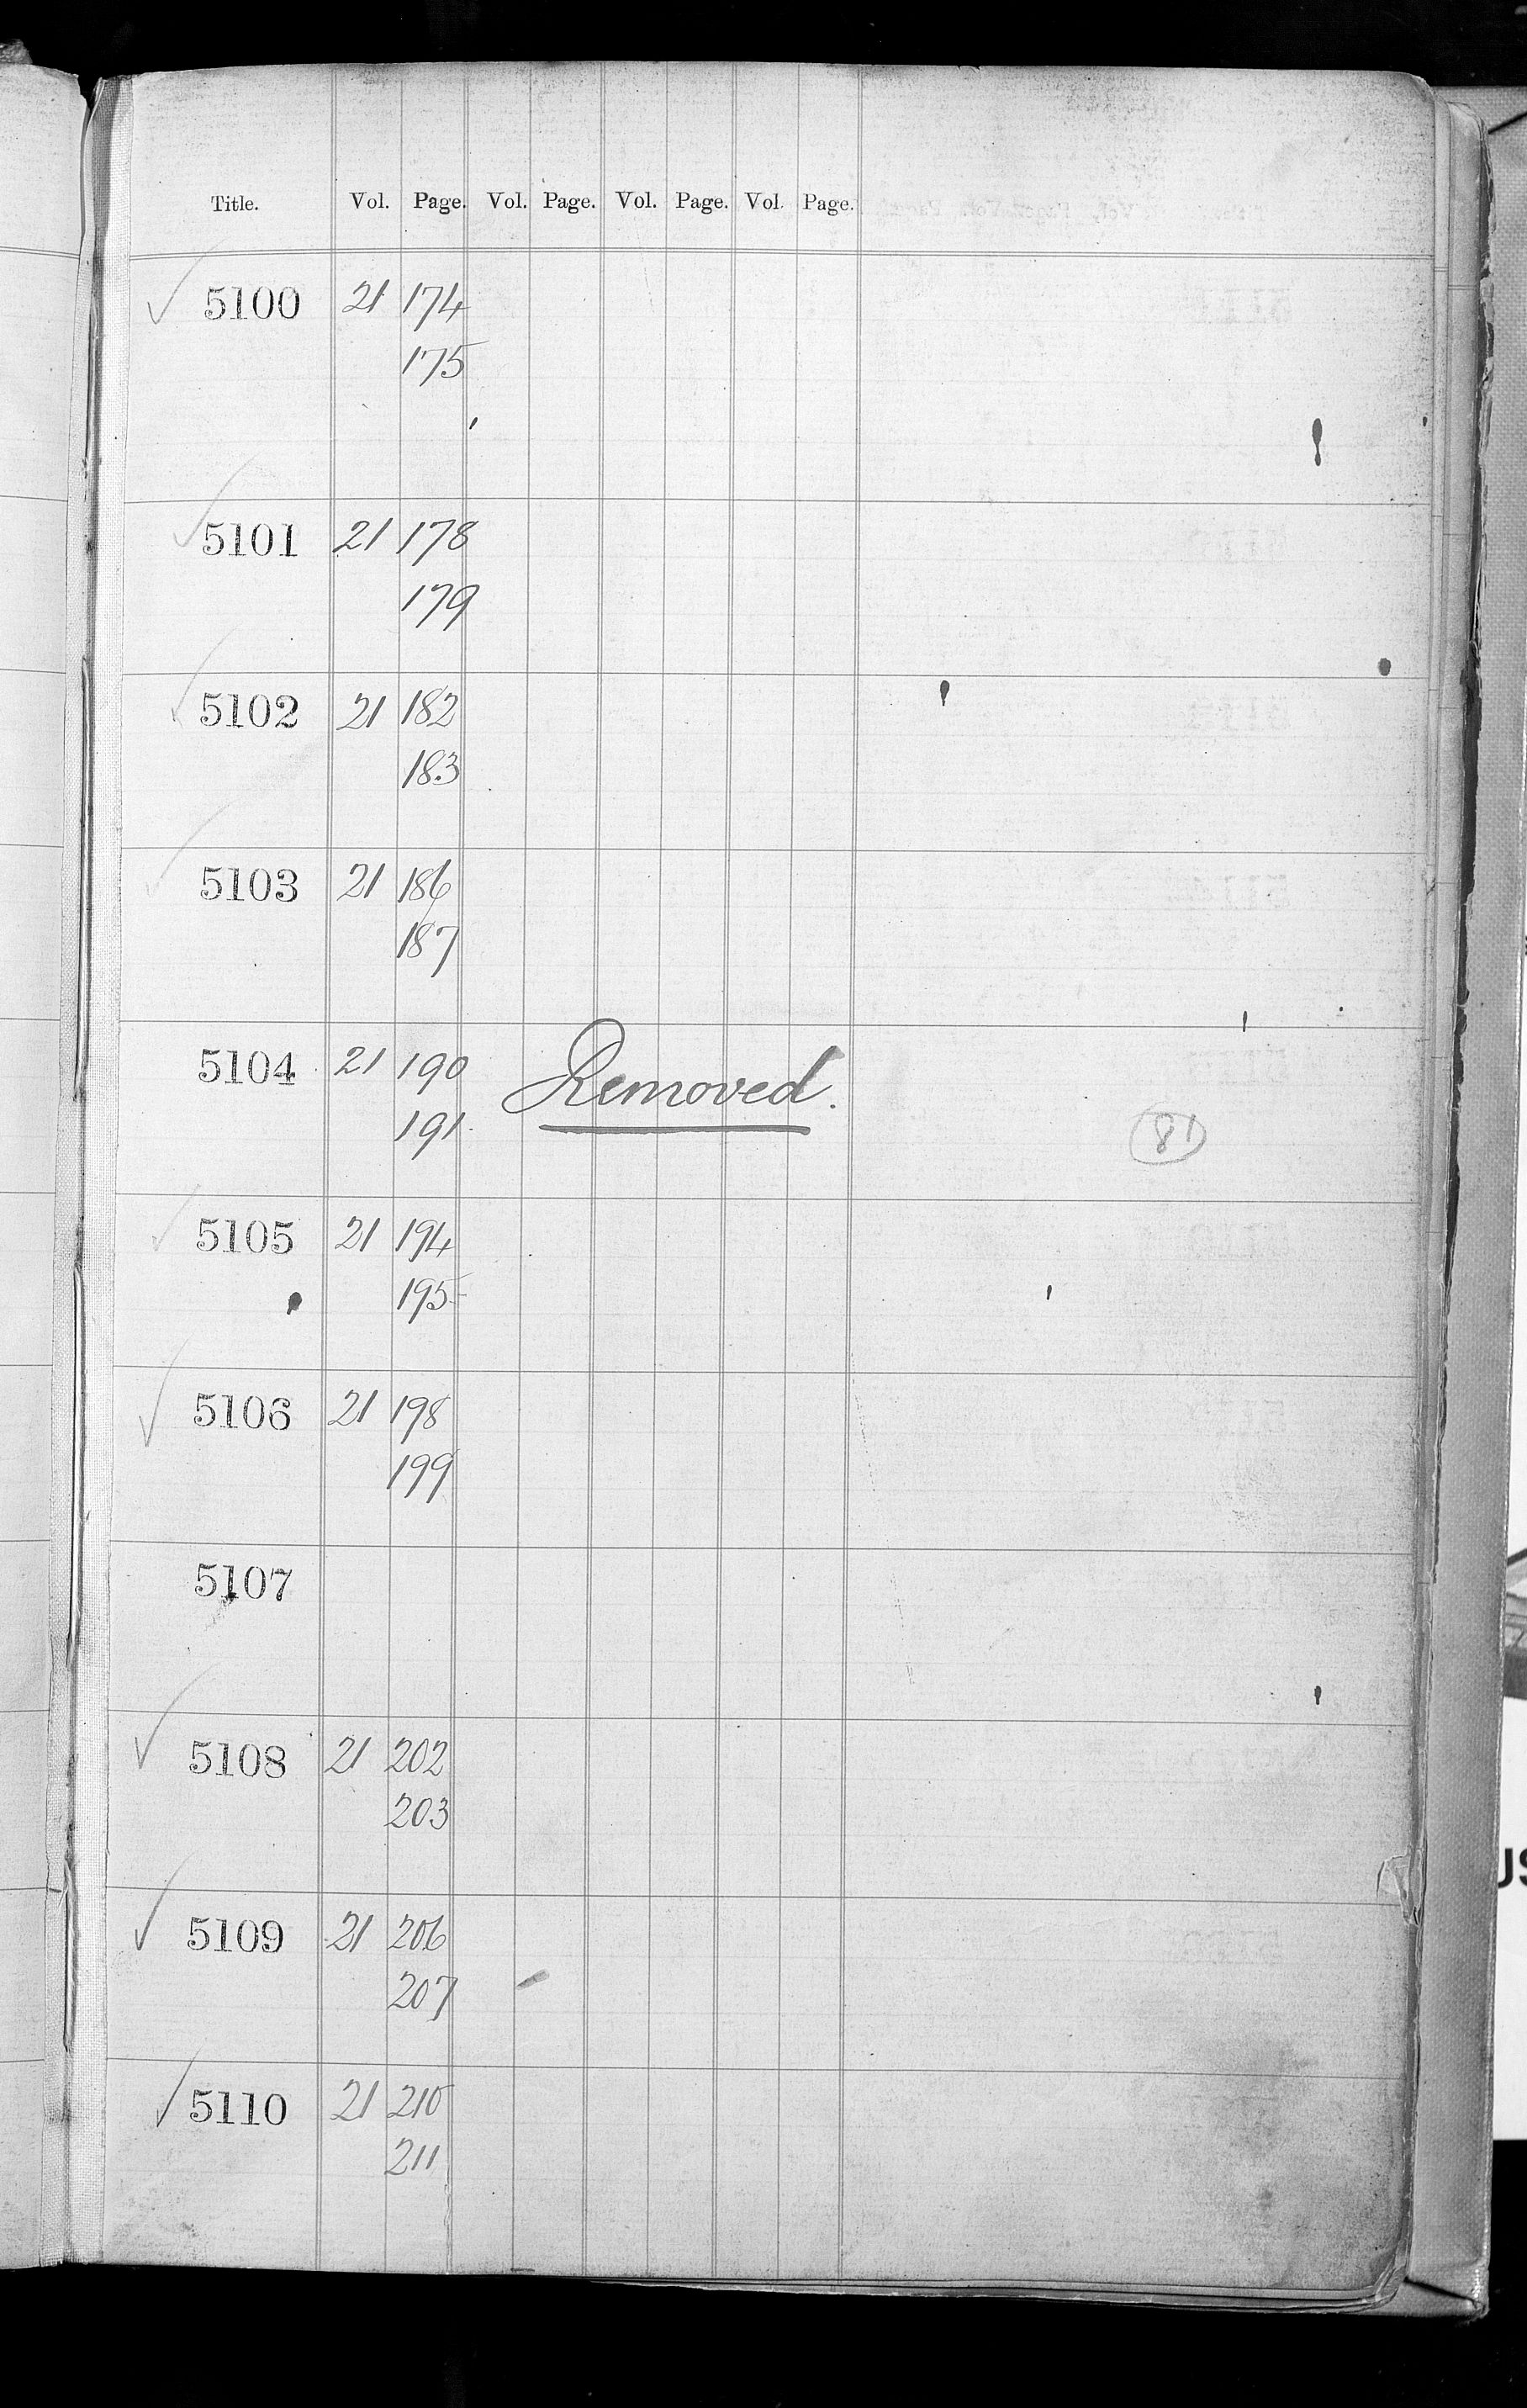 Title. Vol. Page. Vol. Page. Vol. Page. Vol. Page.
✓ 5100 21 174
175
✓ 5101 21 178
179
✓ 5102 21 182
183
✓ 5103 21 186
187
5104 21 190 Removed.
191
81
✓ 5105 21 194
195
✓ 5106 21 198
199
5107
✓ 5108 21 202
203
✓ 5109 21 206
207
✓ 5110 21 210
211
US